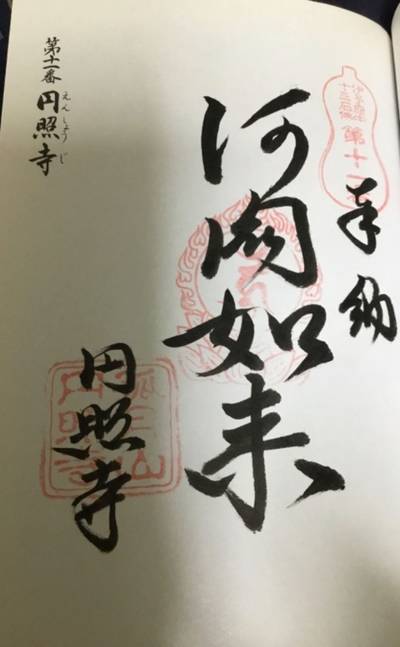 第十一番
奉納
阿閦如来
円照寺
第十一番 円照寺
えんしょうじ